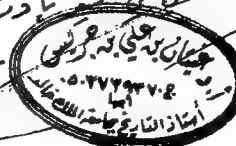 غيثان بن علي بن جريس
ج ٠٥٠٣٧٢٩٣٧٠
أبها
أستاذ التاريخ بجامعة الملك خالد